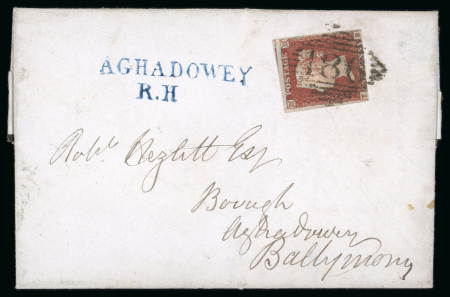 AGHADOWEY
R.H
POSTAGE
Robt Hezlett Esq
Bovagh
Aghadowey
Ballymony